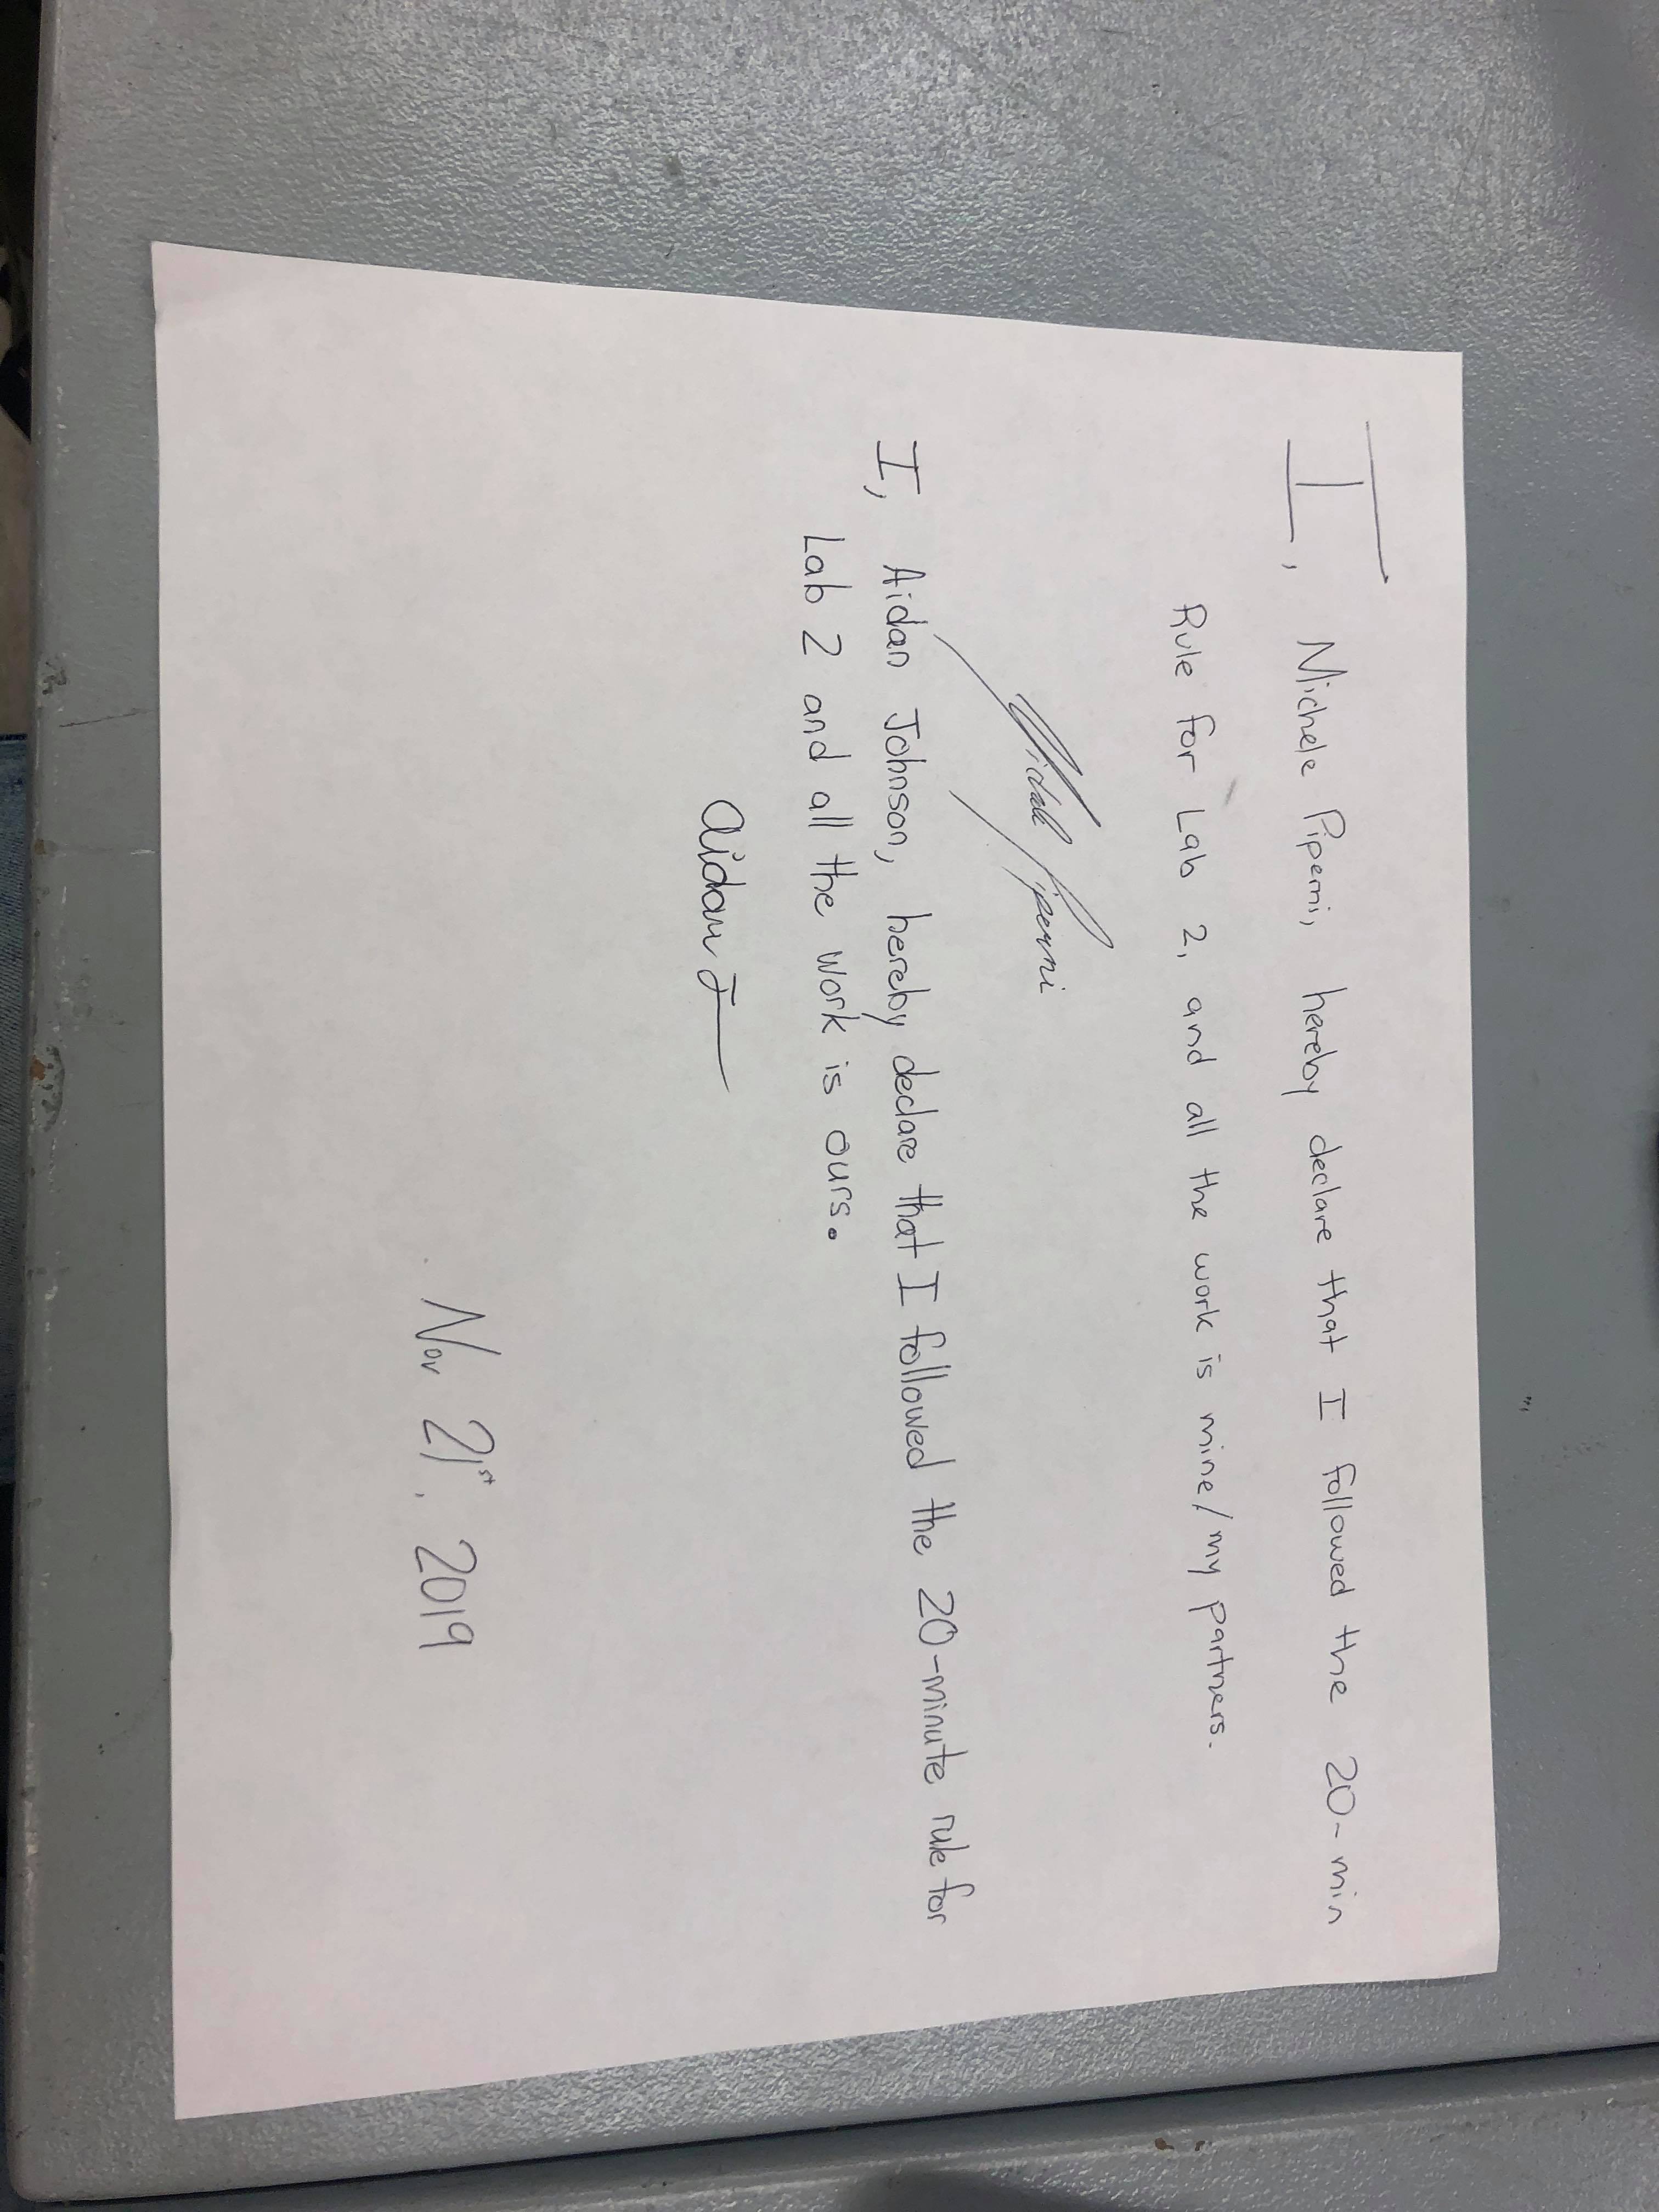 I, Michele Piperni, hereby declare that I followed the 20-min
Rule for Lab 2, and all the work is mine/my partners.
Michele Piperni
I, Aidan Johnson, hereby declare that I followed the 20-minute rule for
Lab 2 and all the work is ours.
Aidan J
Nov 21st, 2019